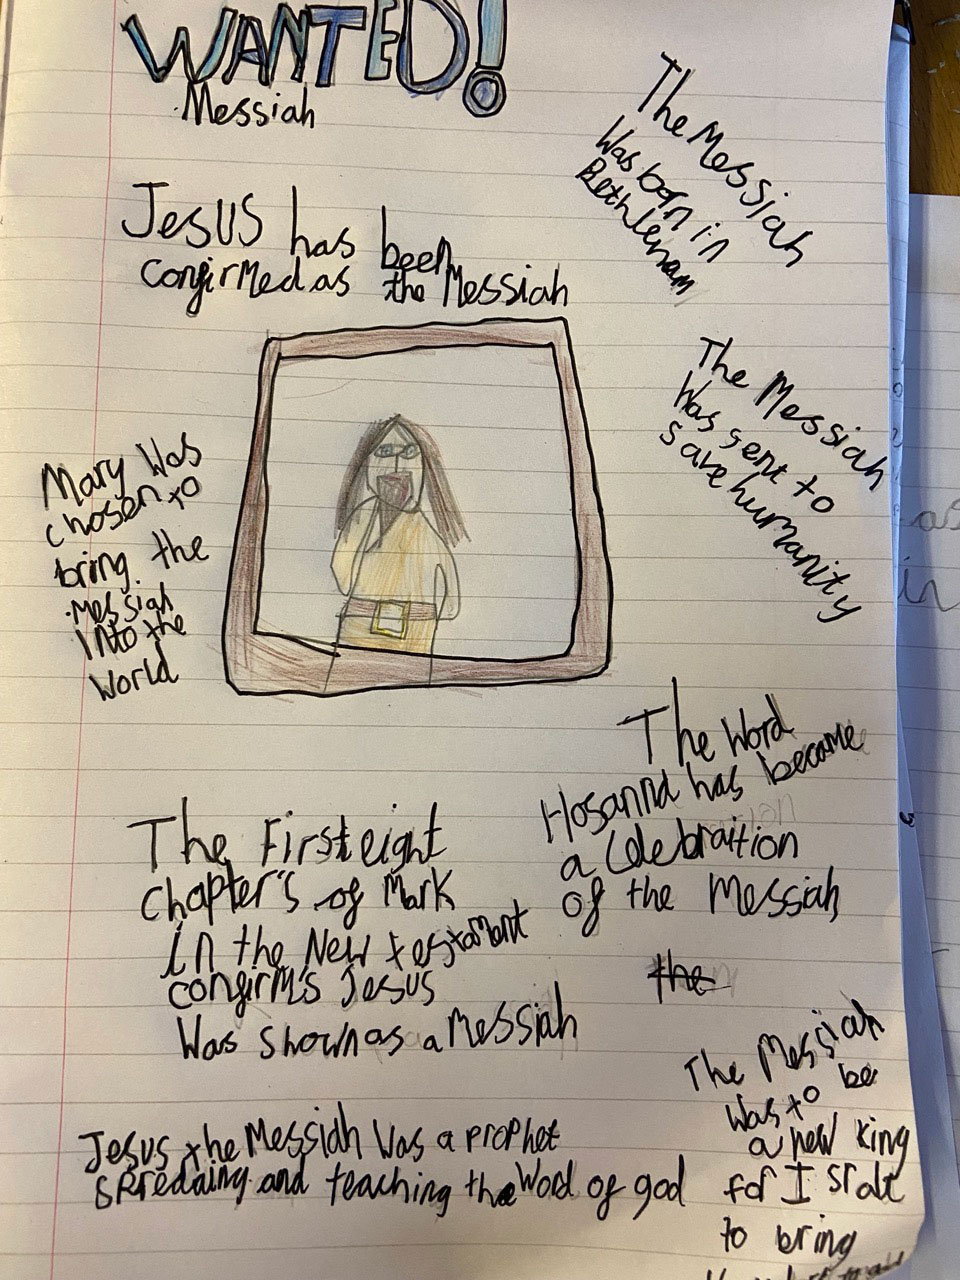 WANTED!
Messiah
The Messiah
Was born in
Bethleham
Jesus has been
confirmed as the Messiah
The Messiah
Was sent to
save humanity
Mary Was
chosen to
bring the
Messiah
Into the
World
The Word
Hosanna has became
a Celebraition
of the Messiah
The First eight
Chapter's of Mark
in the New testament
confirm's Jesus
Was shown as a Messiah
the
The Messiah
Was to be
a new king
for Isralt
to bring
Jesus the Messiah Was a prophet
spredaing and teaching the Word of god